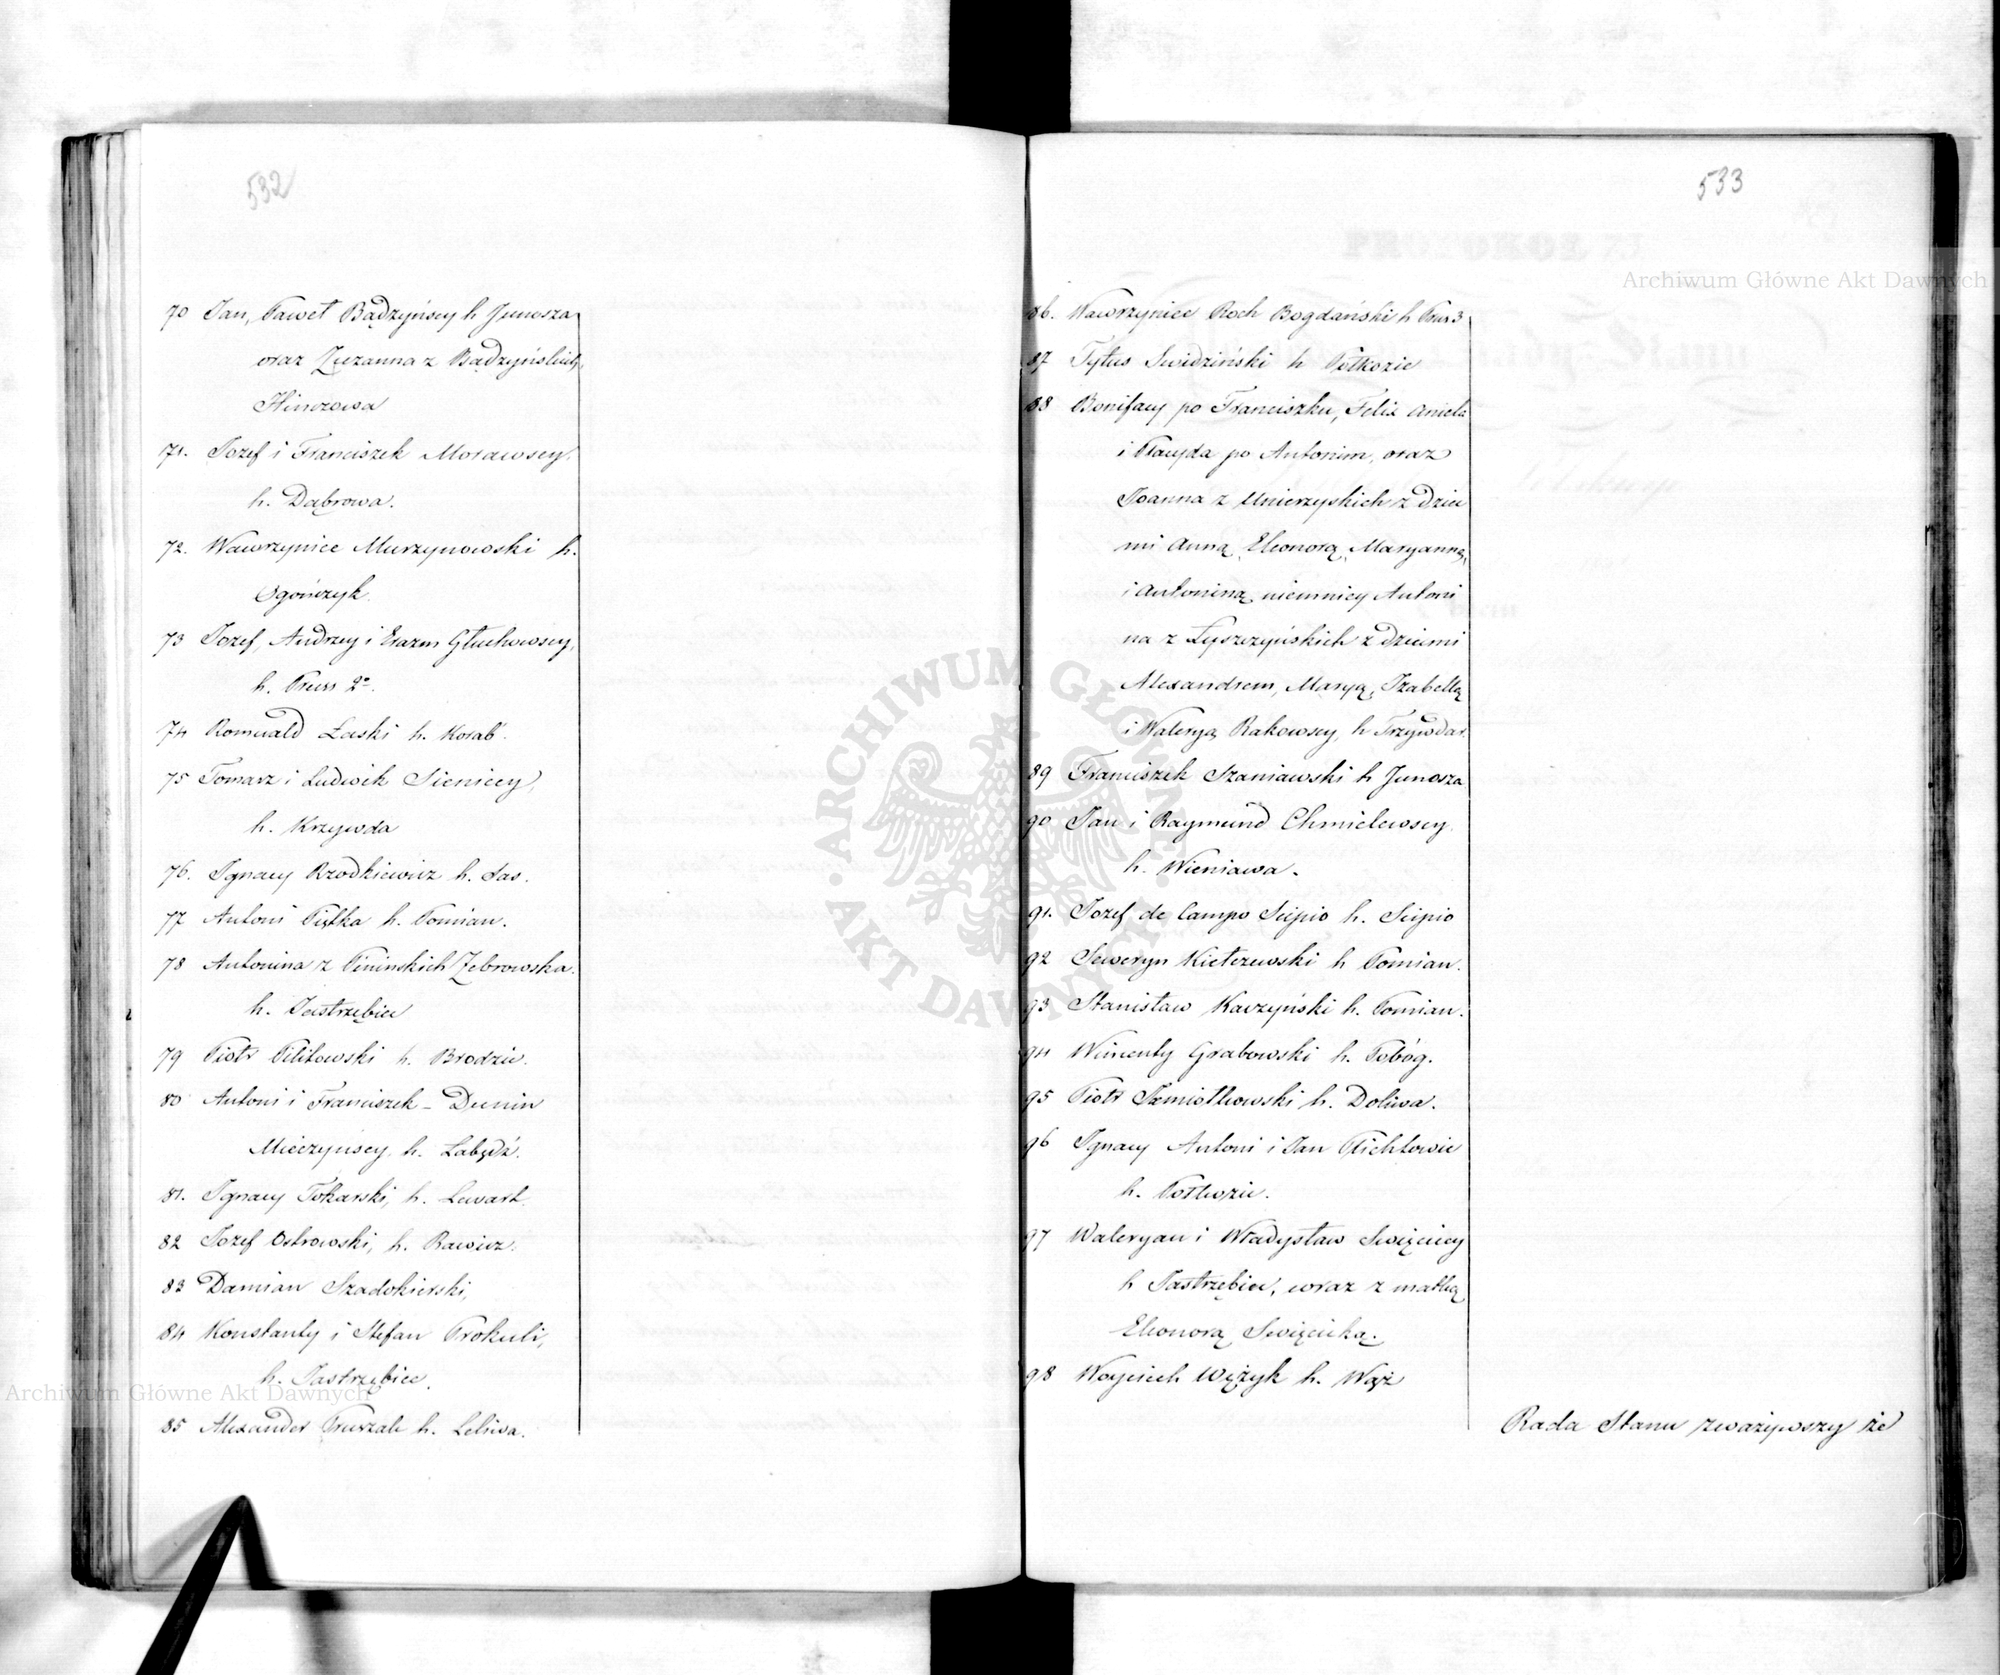 532
70 Jan, Paweł Bądzyńscy h Junosza
oraz Zuzanna z Bądzyńskich,
Hinczowa
71. Jozef i Franciszek Morawscy,
h. Dąbrowa.
72. Wawrzyniec Murzynowski h.
Ogończyk.
73 Jozef, Andrzey i Erazm Głuchowscy,
h. Pruss 2o.
74 Romuald Łaski h. Korab.
75 Tomasz i Ludwik Sieniccy,
h. Krzywda
76. Ignacy Rzodkiewicz h. Sas.
77 Antoni Piątka h. Pomian.
78 Antonina z Pinińskich Żebrowska.
h. Jastrzębiec
79 Piotr Pilitowski h. Brodzic.
80 Antoni i Franciszek - Dunin
Mieczyńscy, h. Łabędź.
81. Ignacy Tokarski, h. Lewart.
82 Jozef Ostrowski, h. Rawicz.
83 Damian Szadokierski,
84 Konstanty i Stefan Prokuli,
h. Jastrzębiec.
85 Alexander h. Leliwa.
533
86. Wawrzyniec Roch Bogdański h Prus 3
87 Tytus Swidziński h Półkozic
88 Bonifacy po Franciszku, Felix Aniela
i Placyda po Antonim, oraz
Joanna z Unierzyskich z dzieć
mi Anną, Eleonorą, Maryanną,
i Antoniną, niemniey Antoni
na z Łyszczyńskich z dziećmi
Alexandrem, Maryą, Izabellą
i Waleryą Rakowscy, h Trzywdar.
89 Franciszek Szaniawski h Junosza
90 Jan i Raymund Chmielewscy
h. Wieniawa.
91. Jozef de Campo Scipio h. Scipio
92 Seweryn Kiełczewski h Pomian.
93 Stanisław Kaczyński h. Pomian.
94 Wincenty Grabowski h. Pobóg.
95 Piotr Szmiotkowski h. Doliwa.
96 Ignacy Antoni i Jan Plichtowie
h. Półkozic.
97 Waleryan i Władysław Swięciccy
h Jastrzębiec, wraz z matką
Eleonorą Swięcicką.
98 Woyciech Wężyk h. Wąż
Rada Stanu zważywszy że
Archiwum Główne Akt Dawnych
ARCHIWUM GŁÓWNE AKT DAWNYCH
Archiwum Główne Akt Dawnych